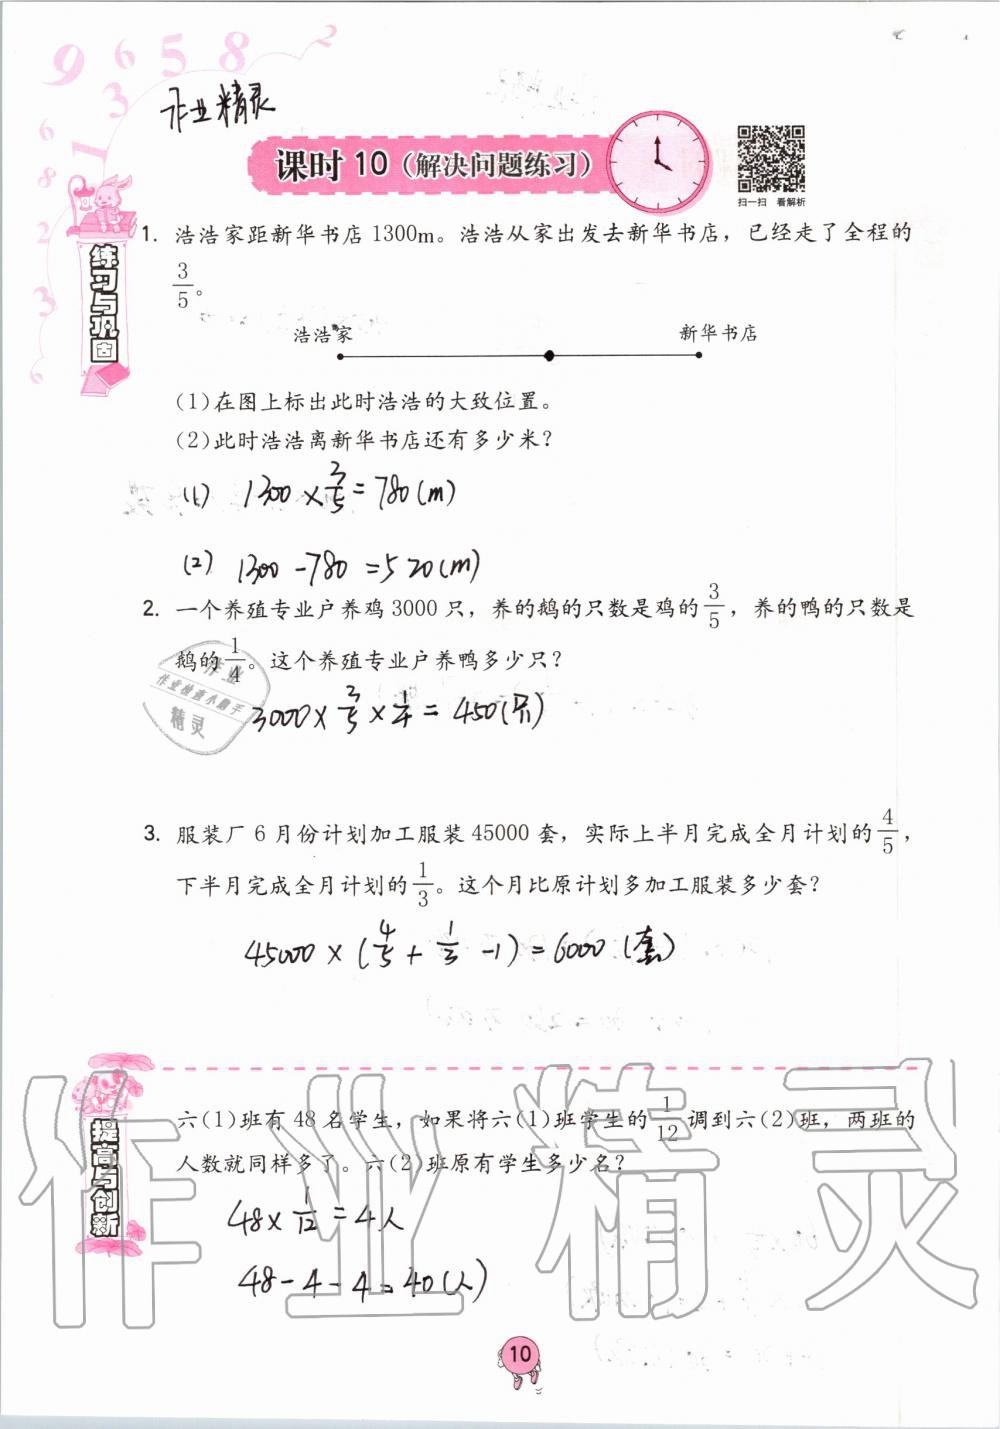 9 6 5 8 2
3
作业精灵
课时 10（解决问题练习）
扫一扫 看解析
6
1
8
2
3
6
练习与巩固
1. 浩浩家距新华书店 1300m。浩浩从家出发去新华书店，已经走了全程的
3/5。
浩浩家 新华书店
(1)在图上标出此时浩浩的大致位置。
(2)此时浩浩离新华书店还有多少米？
(1) 1300×3/5=780(m)
(2) 1300-780=520(m)
2. 一个养殖专业户养鸡 3000 只，养的鹅的只数是鸡的3/5，养的鸭的只数是
鹅的1/4。这个养殖专业户养鸭多少只？
作业
作业检查小助手
精灵
3000×3/5×1/4=450(只)
3. 服装厂 6 月份计划加工服装 45000 套，实际上半月完成全月计划的4/5，
下半月完成全月计划的1/3。这个月比原计划多加工服装多少套？
45000×(4/5+1/3-1)=6000(套)
作业精灵
提高与创新
六(1)班有 48 名学生，如果将六(1)班学生的1/12调到六(2)班，两班的
人数就同样多了。六(2)班原有学生多少名？
48×1/12=4人
48-4-4=40(人)
10